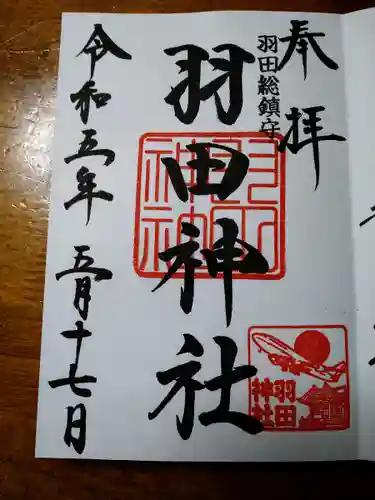 奉拝
羽田総鎮守
羽田神社
羽田神社
令和五年 五月十七日
羽田
神社